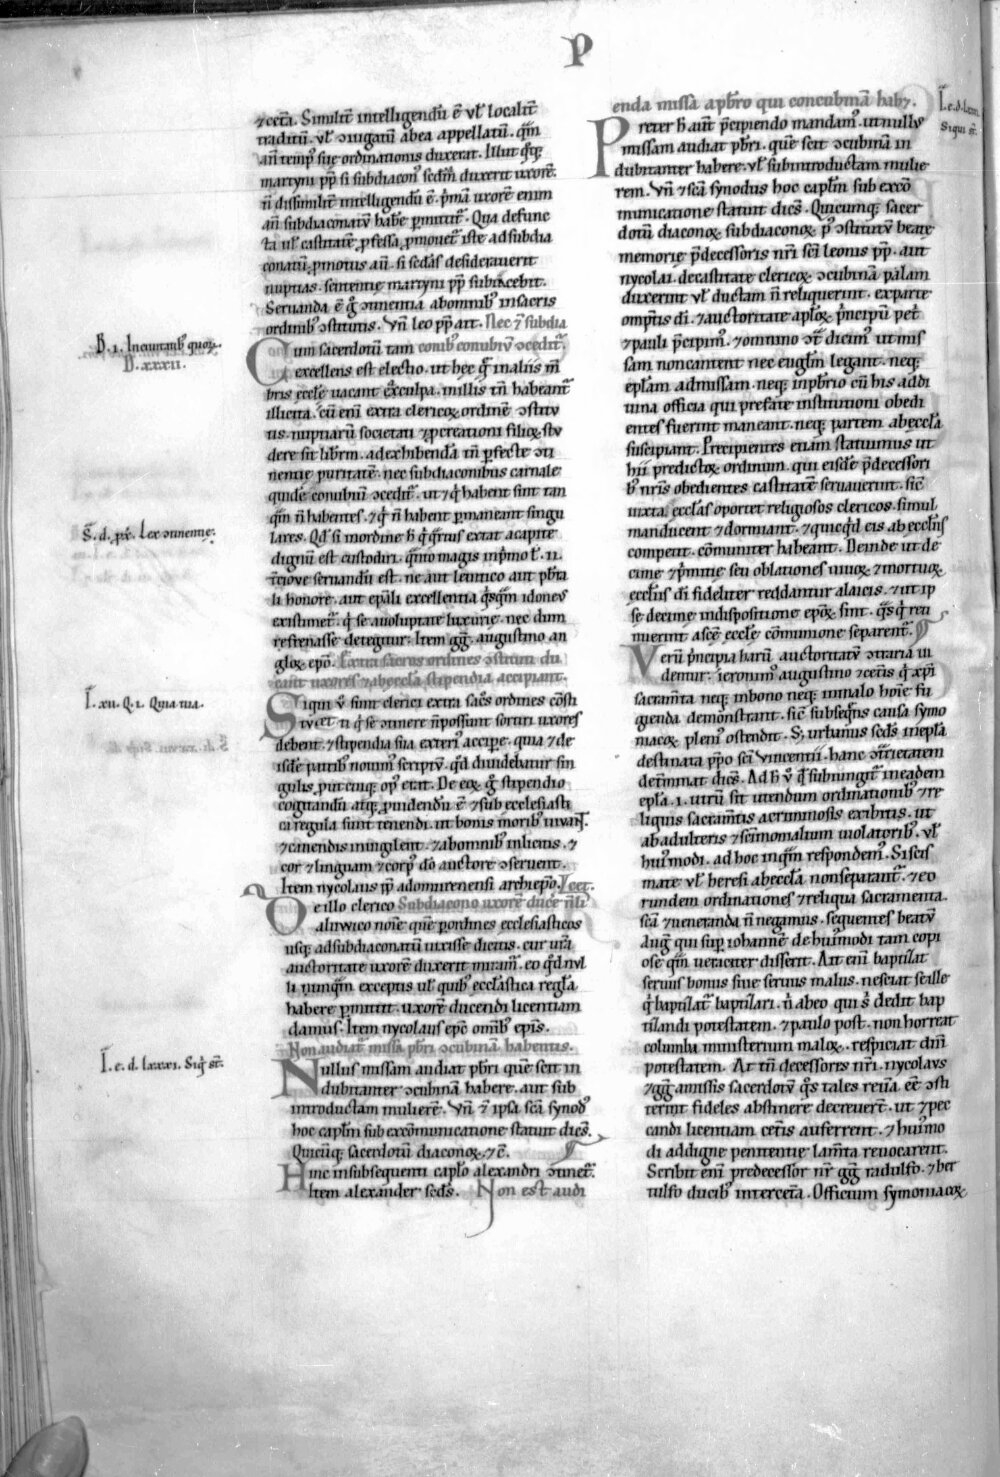 P
⁊ cet̄a. Similit̄ intelligendū ē ul̓ localit̄
traditū. ul̓ ꝯiugatū ab ea appellatū. q̄m
an̄ temp᷒ sue ordinationis duxerat. Illut q̄q;
martyni pp̄ si subdiacon᷒ sedm̄ duxerit uxorē.
n̄ dissimilit̄ intelligendū ē. p̓mā uxorē enim
an̄ subdiaconatū habe p̓mittit᷒. Qua defunc
ta ul̓ castitatē ꝓfessa. ꝓmouet᷒ iste ad subdia
conatū. ꝓmotus aū. si sedās desiderauerit
nuptias. sententie martyni pp̄ subiacebit.
Seruanda ē ḡ ꝯtinentia ab omnib᷒ in sacris
ordinib᷒ ꝯstitutis. Vn̄ leo pp̄ ait. Nec ⁊ subdia
Cum sacerdotū tam conib᷒ conubiū ꝯcedit᷒.
excellens est electio. ut hec q̓ in aliis m̄
bris eccl̄e uacant ex culpa. in illis tn̄ habeant᷒
illicita. cū eni extra clericoꝝ ordinē ꝯstitu
tis. nuptiarū societati ⁊ ꝓcreationi filioꝝ stu
dere sit lib̄rm. ad exhibendā tn̄ p̓fecte ꝯti
nentie puritatē. nec subdiaconibus carnale
quidē conubiū ꝯcedit᷒. ut ⁊ q̓ habent sint tan
q̄m n̄ habentes. ⁊ q̓ n̄ habent p̓maneant singu
lares. Qd̓ si in ordine h̄ q̓ q̓rtus extat a capite
dignū est custodiri. q̄nto magis in p̓mo t̓. ii.
t̄ciove seruandū est. ne aut leuitico aut pb̄ra
li honore. aut ep̄ali excellentia q̓sq̄m idoneus
existimet᷒. q̓ se a uoluptate luxurie. nec dum
refrenasse detegitur. Item gg̓. augustino an
gloꝝ epō. Extra sacros ordines ꝯstituti du
cant uxores ⁊ ab eccl̄a stipendia accipiant.
Siqui v̓ sunt clerici extra sac̄s ordines cōsti
tuti et n̄ q̓ se ꝯtinere n̄ possunt sortiri uxores
debent. ⁊ stipendia sua exteri᷒ accipe. quia ⁊ de
isdē patrib᷒ nouim᷒ scriptū. qd̓ diuidebatur sin
gulis. put cuiq; op᷒ erat. De eoꝝ ḡ stipendio
cogitandū atq; ꝓuidendū ē ⁊ sub ecclesiasti
ca regula sunt tenendi. ut bonis morib᷒ uiuant.
⁊ canendis inuigilent. ⁊ ab omnib᷒ inlicitis. ⁊
cor ⁊ linguam ⁊ corp᷒ dō auctore ꝯseruent.
Item nycolaus pp̄ adomirenensi archiepō. Lcet.
De illo clerico Subdiacono uxorē ducē n̄ li
aluuico noīe quē p̓ ordines ecclesiasticos
usq; ad subdiaconatū uixisse dicitis. cur ur̄a
auctoritate uxorē duxerit miram᷒. eo qd̓ nul
li nunq̄m exceptis ul̓ quib᷒ eccl̄astica regl̄a
habere p̓mittit. uxorē ducendi licentiam
damus. Item nycolaus epc̄ omib᷒ epis̄.
Non audiat᷒ missa pb̄ri ꝯcubinā habentis.
Nullus missam audiat pb̄ri quē scit in
dubitanter ꝯcubinā habere. aut sub
introductam mulierē. Vn̄ ⁊ ipsa scā synod᷒
hoc capl̄m sub excōmunicatione statuit dicēs.
Quicūq; sacerdotū diaconoꝝ. ⁊ c̄.
Hinc in subsequenti caplo alexandri ꝯtinet᷒.
Item alexander scds̄. Non est audi
enda missa a pb̄ro qui concubinā hab⁊.
Preter h̄ aut̄ p̄cipiendo mandam᷒. ut nullus
missam audiat pb̄ri. quē scit ꝯcubinā in
dubitanter habere. ul̓ subintroductam mulie
rem. Vn̄ ⁊ scā synodus hoc capl̄m sub excō
municatione statuit dicēs. Quicumq; sacer
dotū diaconoꝝ subdiaconoꝝ p᷒ ꝯstitutū beate
memorie p̄decessoris nr̄i sc̄i leonis pp̄. aut
nycolai. de castitate clericoꝝ ꝯcubinā palam
duxerint ul̓ ductam n̄ reliquerint. ex parte
omptis di. ⁊ auctoritate aplōꝝ p̓ncipū pet᷒
⁊ pauli p̄cipim᷒. ⁊ omnino ꝯt̄dicim᷒ ut mis
sam non cantent nec euglm̄ legant. neq;
eplam ad missam. neq; in pb̄rio cū his ad di
uina officia qui prefate institutioni obedi
entes fuerint maneant. neq; partem ab eccl̄a
suscipiant. Precipientes etiam statuimus ut
hii predictoꝝ ordinum. qui eisdē p̄decessori
b᷒ nr̄is obedientes castitatē seruauerunt. sic̄
iuxta eccl̄as oportet religiosos clericos. simul
manducent ⁊ dormiant. ⁊ quicq̓d eis ab eccl̄iis
competit. cōmuniter habeant. Deinde ut de
cime ⁊ p̓mitie seu oblationes uiuoꝝ ⁊ mortuoꝝ
eccl̄iis di fideliter reddantur a laicis. ⁊ ut ip
se decime in dispositione epoꝝ sint. q̓s q̓ reti
nuerint a scē eccl̄e cōmunione separent᷒.
Verū p̓ncipia harū auctoritatū ꝯtraria ui
dentur. ieronim᷒ augustino ⁊ cet̄is q̓ xp̄i
sacram̄ta neq; in bono neq; in malo hoīe fu
gienda demōnstrant. sic̄ subseq̄ns causa symo
niacoꝝ pleni᷒ ostendit. S; urbanus scds̄ in epl̄a
destinata ꝓpo sc̄i vincentii. hanc ꝯt̄rietatem
det̄minat dicēs. Ad h̄ v̓ q̓ subiungit᷒ in eadem
epl̄a. i. utrū sit utendum ordinationib᷒ ⁊ re
liquis sacram̄tis a criminosis exibitis. ut
ab adulteris ⁊ sc̄imonialium uiolatorib᷒. ul̓
hui᷒modi. ad hoc inq̄m respondem᷒. Si scis
mate ul̓ heresi ab eccl̄a non separant᷒. ⁊ eo
rundem ordinationes ⁊ reliqua sacramenta.
scā ⁊ ueneranda n̄ negamus. sequentes beatū
Aug̓ qui sup̓ iohannē de hui᷒modi tam copi
ose q̄m ueraciter disserit. Ait eni baptizat
seruus bonus siue seruus malus. nesciat se ille
q̓ baptizat᷒ baptizari. n̓ ab eo qui s̓ dedit bap
tizandi potestatem. ⁊ paulo post. non horreat
columba ministerium maloꝝ. respiciat dn̄i
potestatem. At tn̄ decessoris nr̄i. nycolaus
⁊ gg̓ a missis sacerdotū q̓s tales reūa. ec̄ ꝯsti
terint fideles abstinere decreuerē̄. ut ⁊ pec
candi licentiam cet̄is auferrent. ⁊ hui᷒mo
di ad digne penitentie lam̄ta reuocarent.
Scribit eni predecessor nr̄ gg̓ radulfo. ⁊ ber
tulfo ducib᷒ int̄ cet̄a. Officium symoniacoꝝ
D. i. In eunt amb᷒ quoti.
D. xxxii.
S. d. px̄. Lex ꝯtinentie.
I. xii. Q. i. Quia tua.
I. e. d. lxxxi. Siq̓ st̄.
I. e. d. lxxxi.
Siqui st̄.